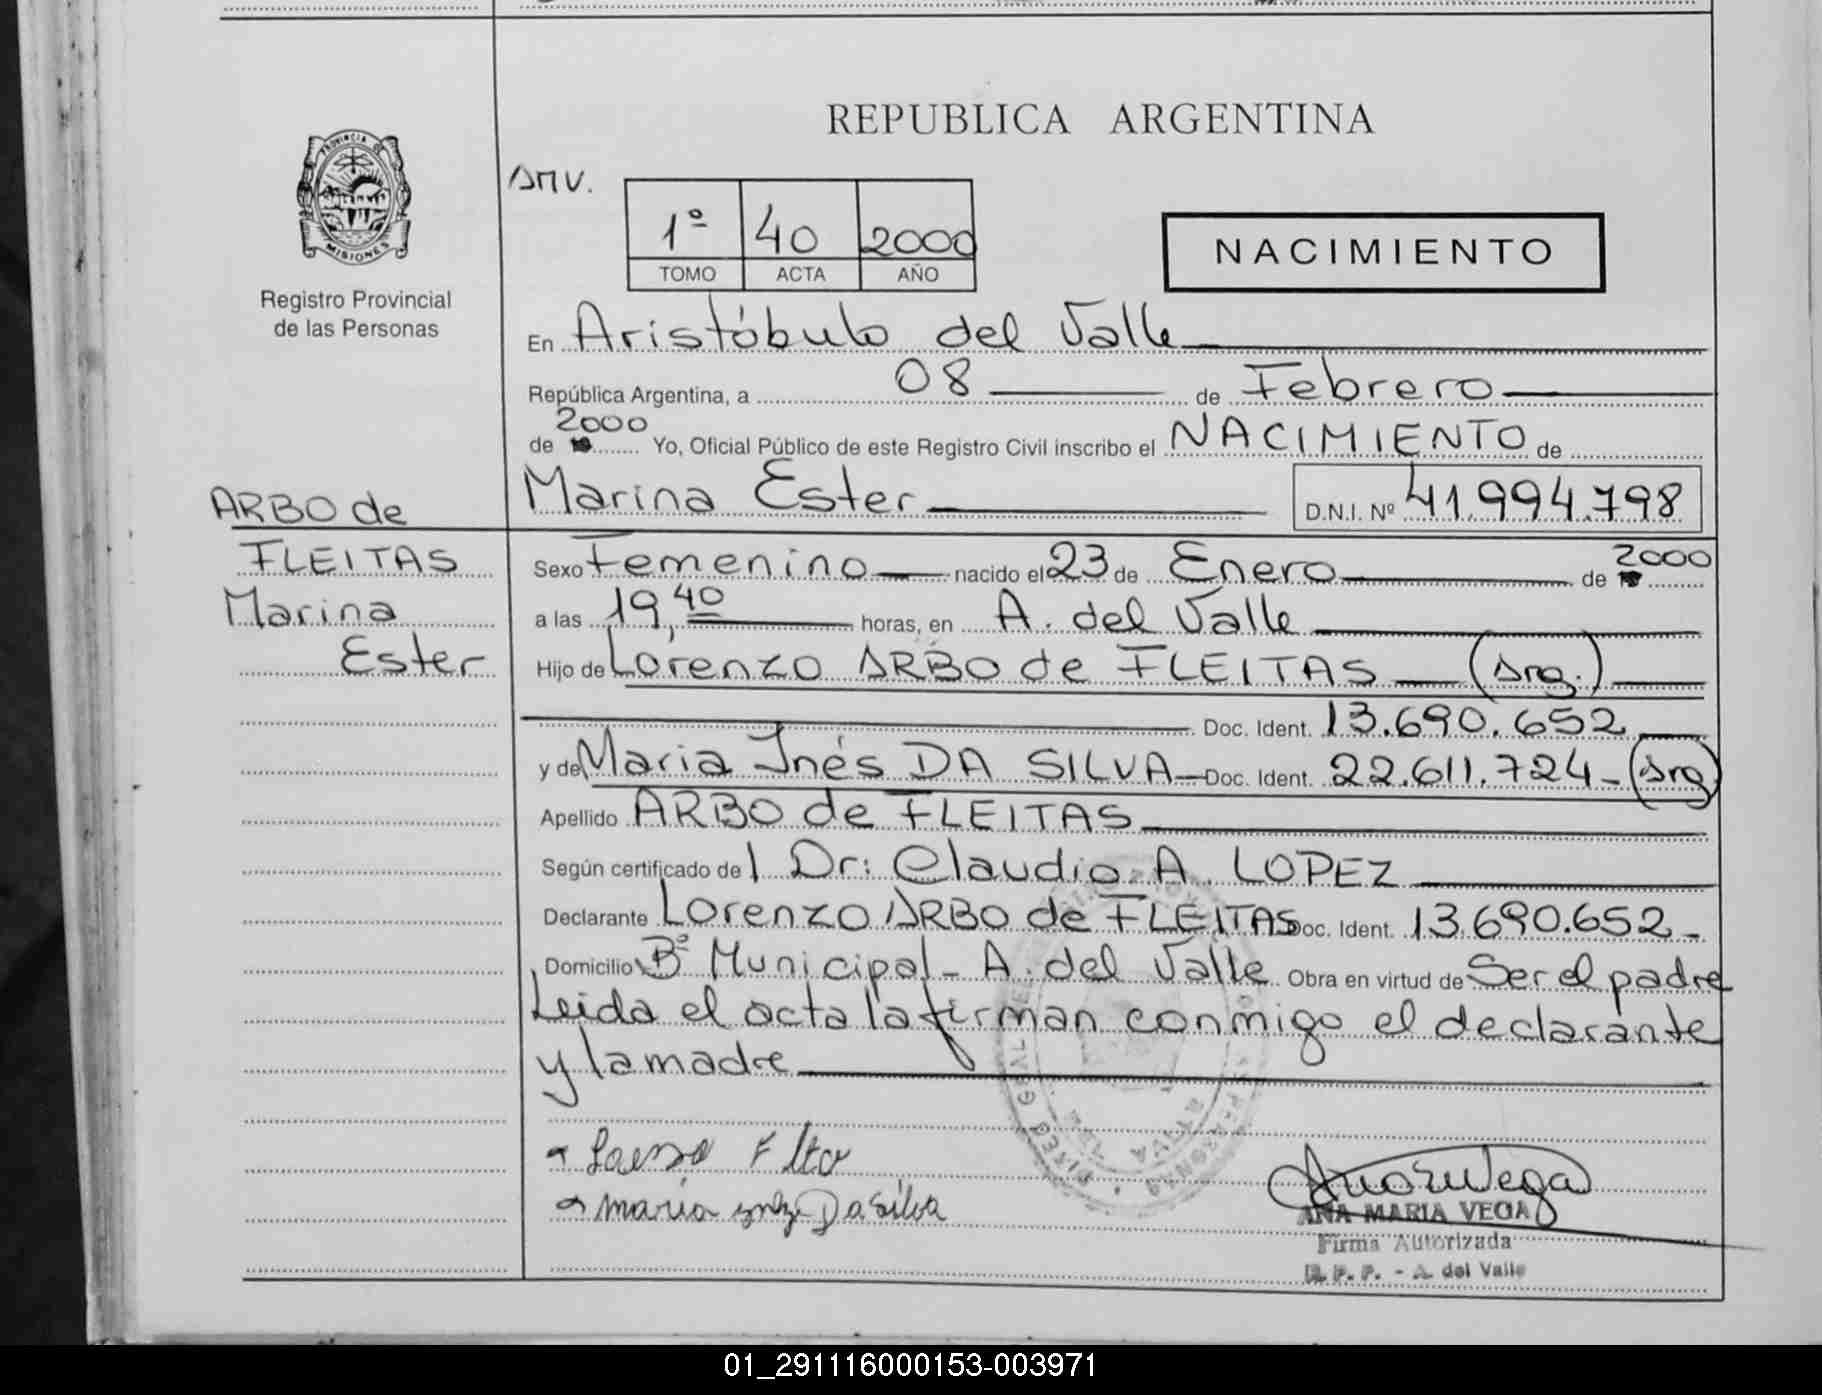 REPUBLICA ARGENTINA
PROVINCIA DE
MISIONES
Registro Provincial
de las Personas
AMV.
1º 40 2000
TOMO ACTA AÑO
NACIMIENTO
En Aristóbulo del Valle
República Argentina, a 08 de Febrero
de 2000 Yo, Oficial Público de este Registro Civil inscribo el NACIMIENTO de
Marina Ester D.N.I. Nº 41.994.798
ARBO de
FLEITAS
Marina
Ester
Sexo Femenino nacido el 23 de Enero de 2000
a las 19,40 horas, en A. del Valle
Hijo de Lorenzo ARBO de FLEITAS (Arg.)
Doc. Ident. 13.690.652
y de Maria Inés DA SILVA Doc. Ident. 22.611.724 - (Arg)
Apellido ARBO de FLEITAS
Según certificado de l Dr: Claudio A. LOPEZ
Declarante Lorenzo ARBO de FLEITAS Doc. Ident. 13.690.652 -
Domicilio Bº Municipal - A. del Valle Obra en virtud de Ser el padre
Leida el acta la firman conmigo el declarante
y la madre
maria Da Silva
ANA MARIA VEGA
Firma Autorizada
R. P. P. - A. del Valle
01_291116000153-003971